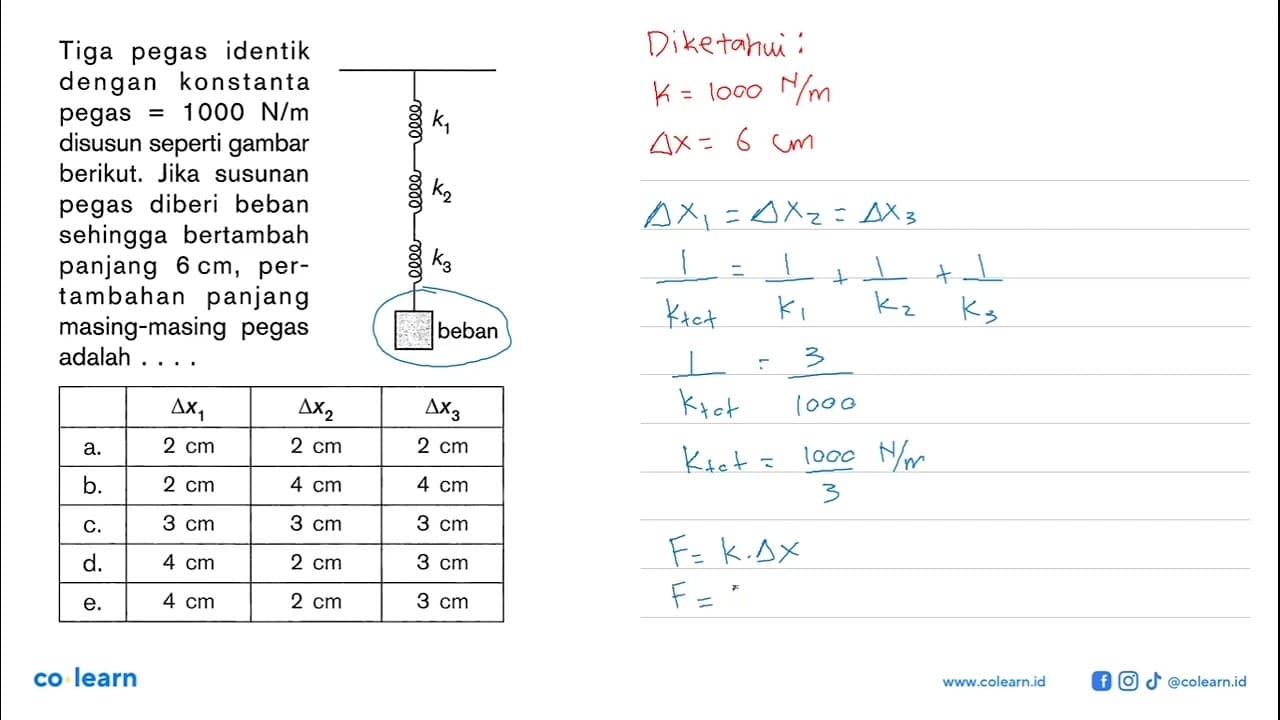 Tiga pegas identik
dengan konstanta
pegas = 1000 N/m
disusun seperti gambar
berikut. Jika susunan
pegas diberi beban
sehingga bertambah
panjang 6 cm, per-
tambahan panjang
masing-masing pegas
adalah . . . .
k₁
k₂
k₃
beban
Δx₁ Δx₂ Δx₃
a. 2 cm 2 cm 2 cm
b. 2 cm 4 cm 4 cm
c. 3 cm 3 cm 3 cm
d. 4 cm 2 cm 3 cm
e. 4 cm 2 cm 3 cm
Diketahui :
K = 1000 N/m
Δx = 6 cm
Δx₁ = Δx₂ = Δx₃
1/Ktot = 1/K₁ + 1/K₂ + 1/K₃
1/Ktot = 3/1000
Ktot = 1000/3 N/m
F = K . Δx
F =
co learn
www.colearn.id
@colearn.id